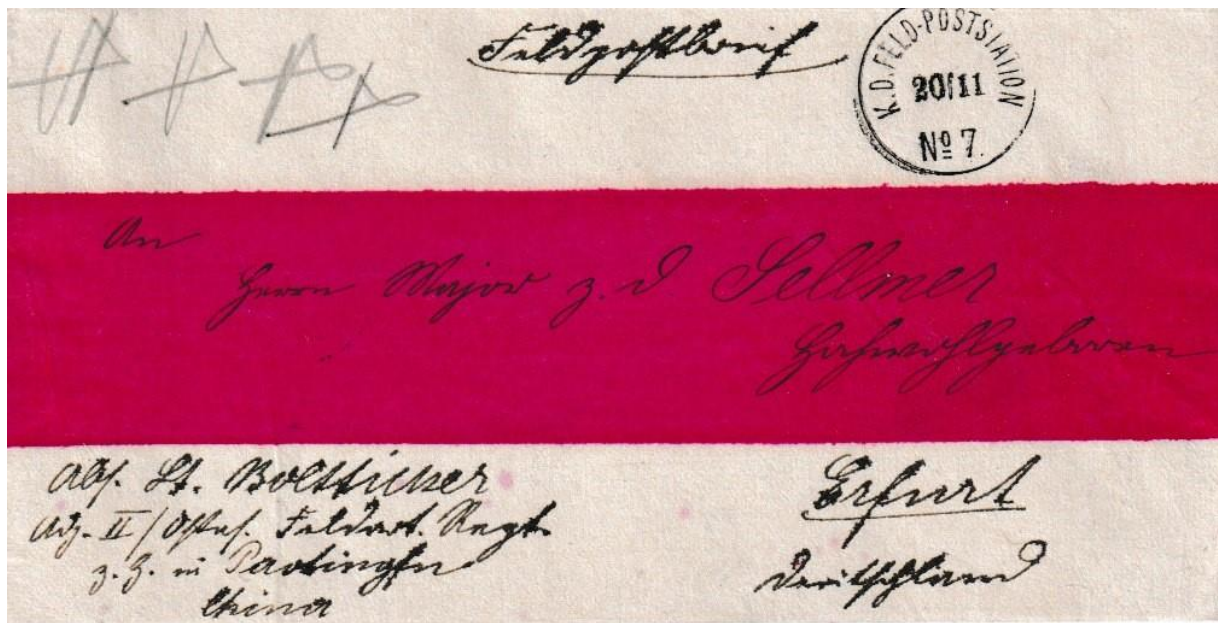 Feldpostbrief
K.D. FELD-POSTSTATION
20/11
No 7.
An
Herrn Major z. D Sellmer
Hochwohlgeboren
Abs. Lt. Boettticher
Adj. II/Ostas. Feldart. Regt.
z. Z. in Paotingfu
China
Erfurt
Deutschland